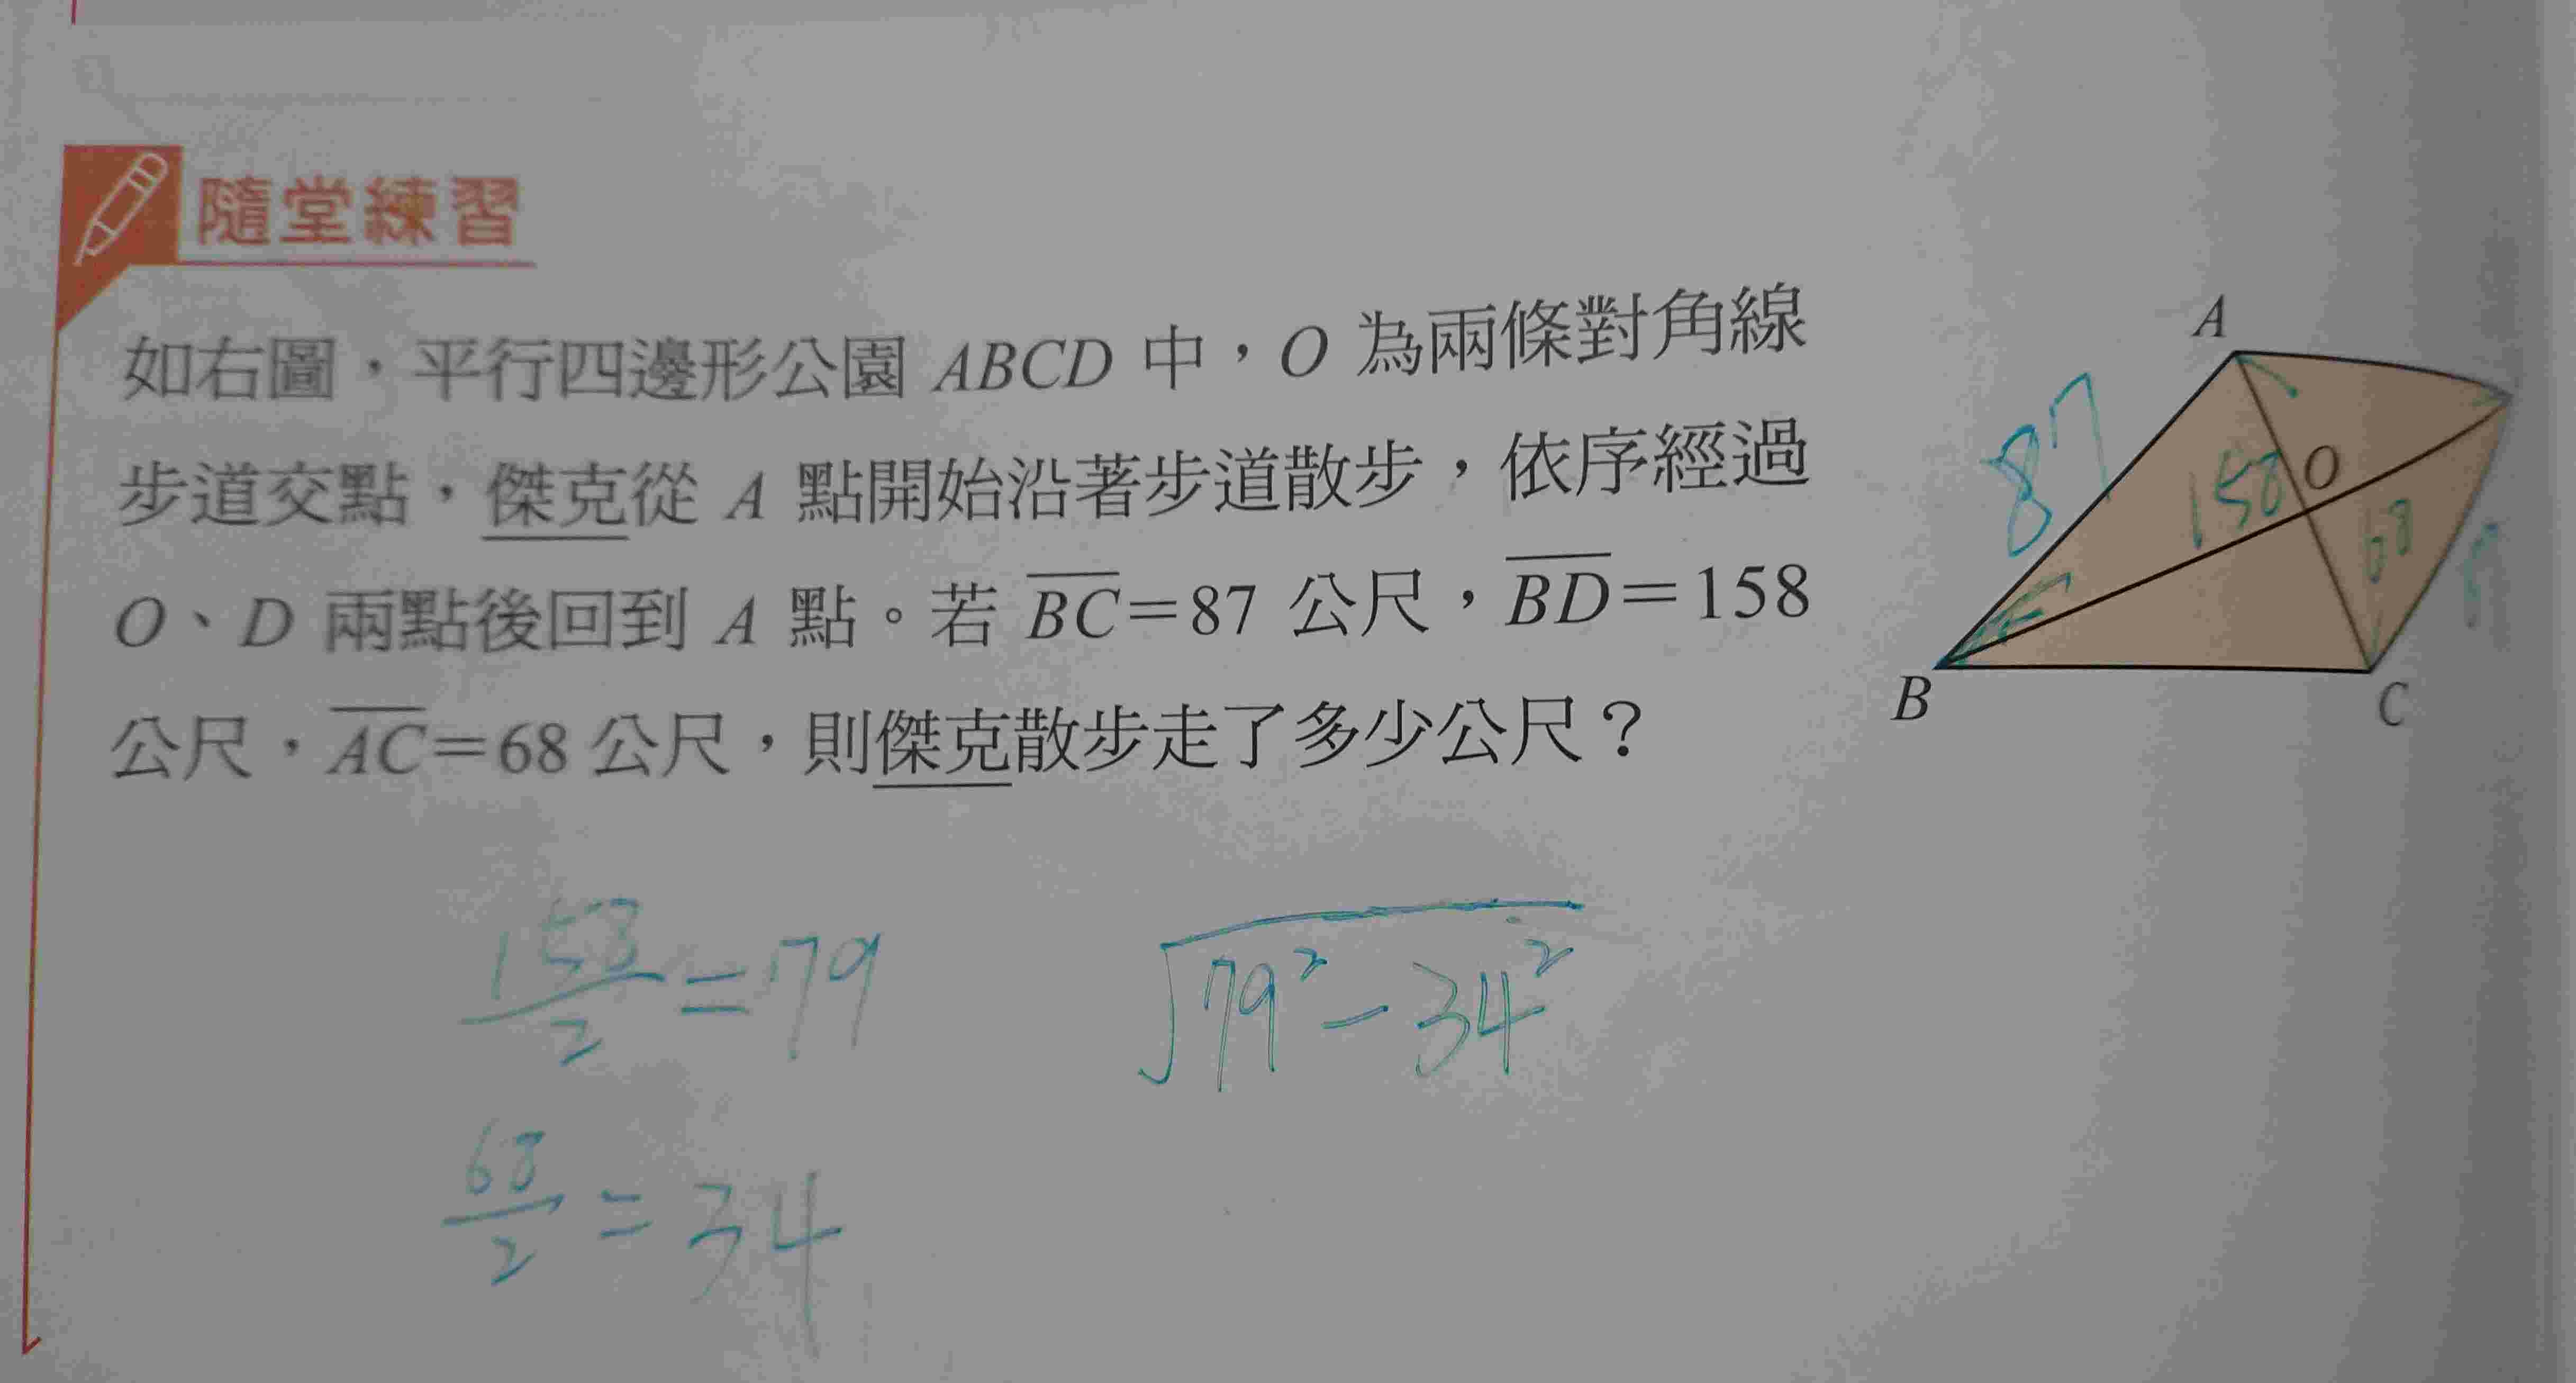 隨堂練習
如右圖，平行四邊形公園 ABCD 中，O 為兩條對角線
步道交點，傑克從 A 點開始沿著步道散步，依序經過
O、D 兩點後回到 A 點。若 BC=87 公尺，BD=158
公尺，AC=68 公尺，則傑克散步走了多少公尺？
A
87
158
O
68
B
C
158/2=79
√79²-34²
68/2=34